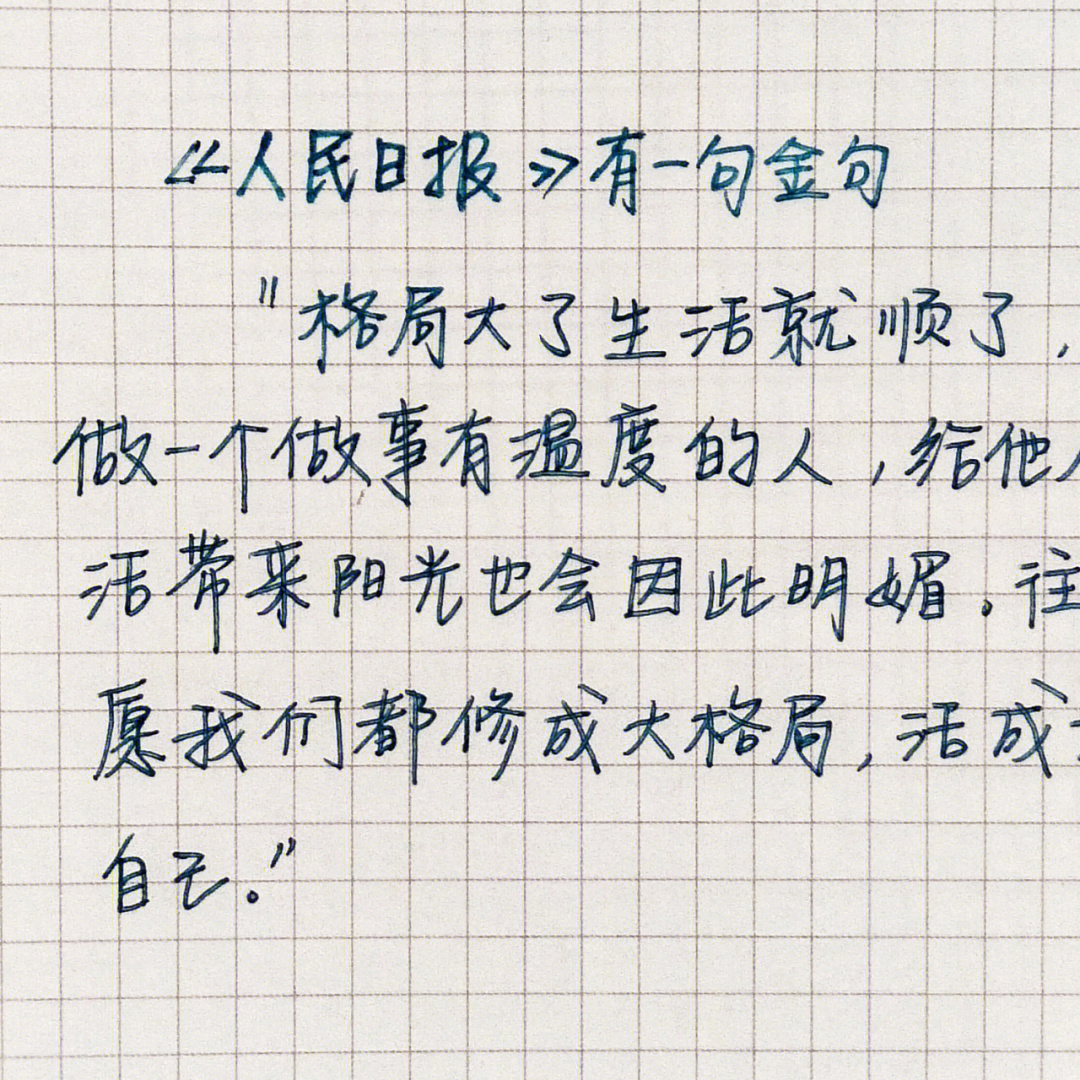 《人民日报》有一句金句
"格局大了生活就顺了,
做一个做事有温度的人,给他
活带来阳光也会因此明媚。往
愿我们都修成大格局,活成
自己。"